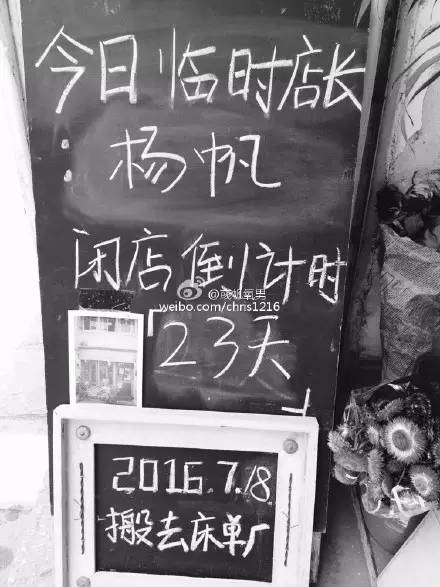 今日临时店长
:杨帆
闭店倒计时
「23天
」
2016.7.18.
搬去床单厂
weibo.com/chris1216